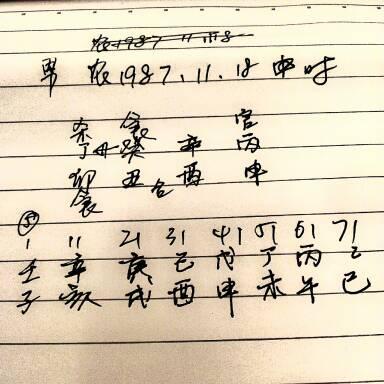 男 农1987.11.18 申时
杀 食 官
丁 癸 辛 丙
卯 丑 合 酉 申
⑤
1 11 21 31 41 51 61 71
壬 辛 庚 己 戊 丁 丙 乙
子 亥 戌 酉 申 未 午 巳